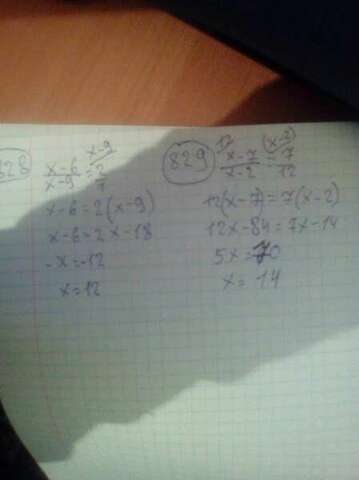 828
x-9
x-6/x-9 = 2/1
x-6=2(x-9)
x-6=2x-18
-x=-12
x=12
829
12 (x-2)
x-7/x-2 = 7/12
12(x-7)=7(x-2)
12x-84=7x-14
5x=70
x=14